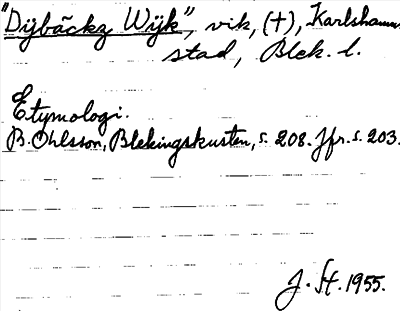 "Dijbäckz Wijk", vik, (†), Karlshamns
stad, Blek. l.
Etymologi.
B. Ohlsson, Blekingskusten, s. 208. Jfr. s. 203.
J. St. 1955.